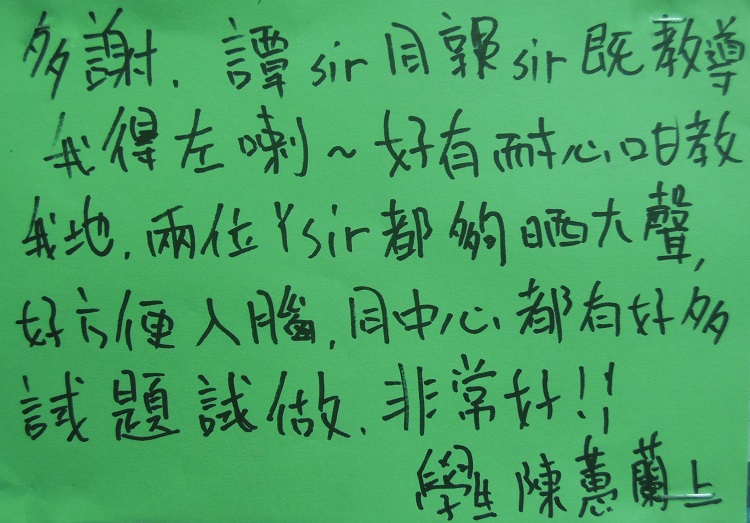 多謝，譚sir同郭sir既教導
我得左喇～好有耐心咁教
我地，兩位Ysir都夠晒大聲，
好方便入腦，同中心都有好多
試題試做，非常好!!
學生 陳蕙蘭上